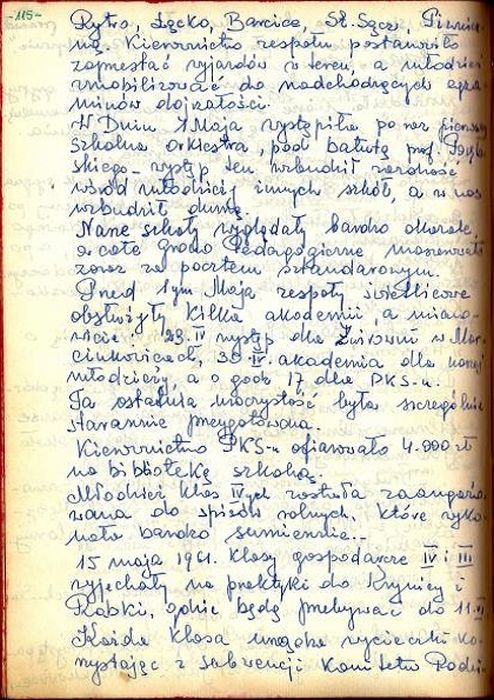 -115-
Rytro, Łącko, Barcice, St. Sącz, Piwnicz-
na. Kierownictwo zespołu postanowiło
zaprzestać wyjazdów w teren, a młodzież
zmobilizować do nadchodzących egza-
minów dojrzałości.
W Dniu 1 Maja wystąpiła po raz pierwszy
szkolna orkiestra, pod batutą prof.
skiego - występ ten wzbudził zazdrość
wśród młodzieży innych szkół, a w nas
wzbudził dumę.
Nasze szkoły wyglądały bardzo okazale,
a całe grono Pedagogiczne maszerowało
zaraz za pocztem sztandarowym.
Przed 1ym Maja zespoły świetlicowe
obsłużyły kilka akademii, a miano-
wicie: 23.IV występ dla w Mar-
cinkowicach, 30.IV. akademia dla naszej
młodzieży, a o godz 17 dla PKS-u.
Ta ostatnia uroczystość była szczególnie
starannie przygotowana.
Kierownictwo PKS-u ofiarowało 4.000 zł
na bibliotekę szkolną.
Młodzież klas IVych została zaangażo-
wana do spisów rolnych, które wyko-
nała bardzo sumiennie..
15 maja 1961. Klasy gospodarcze IV i III
wyjechały na praktyki do Krynicy i
Rabki, gdzie będą przebywać do 11.VI
Każda klasa urządza wycieczki ko-
rzystając z subwencji Komitetu Rodzi-